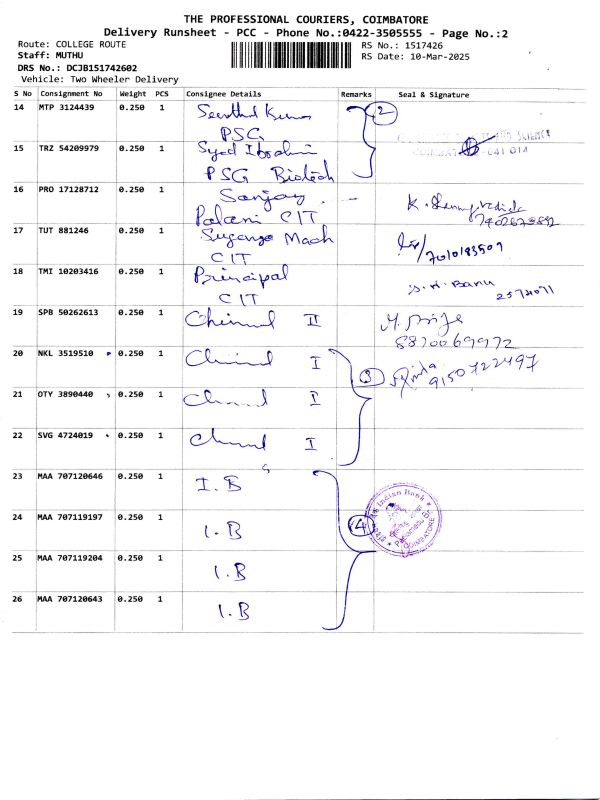 THE PROFESSIONAL COURIERS, COIMBATORE
Delivery Runsheet - PCC - Phone No.:0422-3505555 - Page No.:2
Route: COLLEGE ROUTE RS No.: 1517426
Staff: MUTHU RS Date: 10-Mar-2025
DRS No.: DCJB151742602
Vehicle: Two Wheeler Delivery
S No Consignment No Weight PCS Consignee Details Remarks Seal & Signature
14 MTP 3124439 0.250 1 Kumar 2
PSG
15 TRZ 54209979 0.250 1 Syed Ibrahim
PSG Biotech
16 PRO 17128712 0.250 1 Sanjay
Palani CIT
17 TUT 881246 0.250 1 Mach 7010193509
CIT
18 TMI 10203416 0.250 1 Principal
CIT
19 SPB 50262613 0.250 1 II
8870069972
20 NKL 3519510 0.250 1 I 3 9150722497
21 OTY 3890440 0.250 1 I
22 SVG 4724019 0.250 1 I
23 MAA 707120646 0.250 1 I.B
24 MAA 707119197 0.250 1 I.B 4 Indian Bank COIMBATORE
25 MAA 707119204 0.250 1 I.B
26 MAA 707120643 0.250 1 I.B